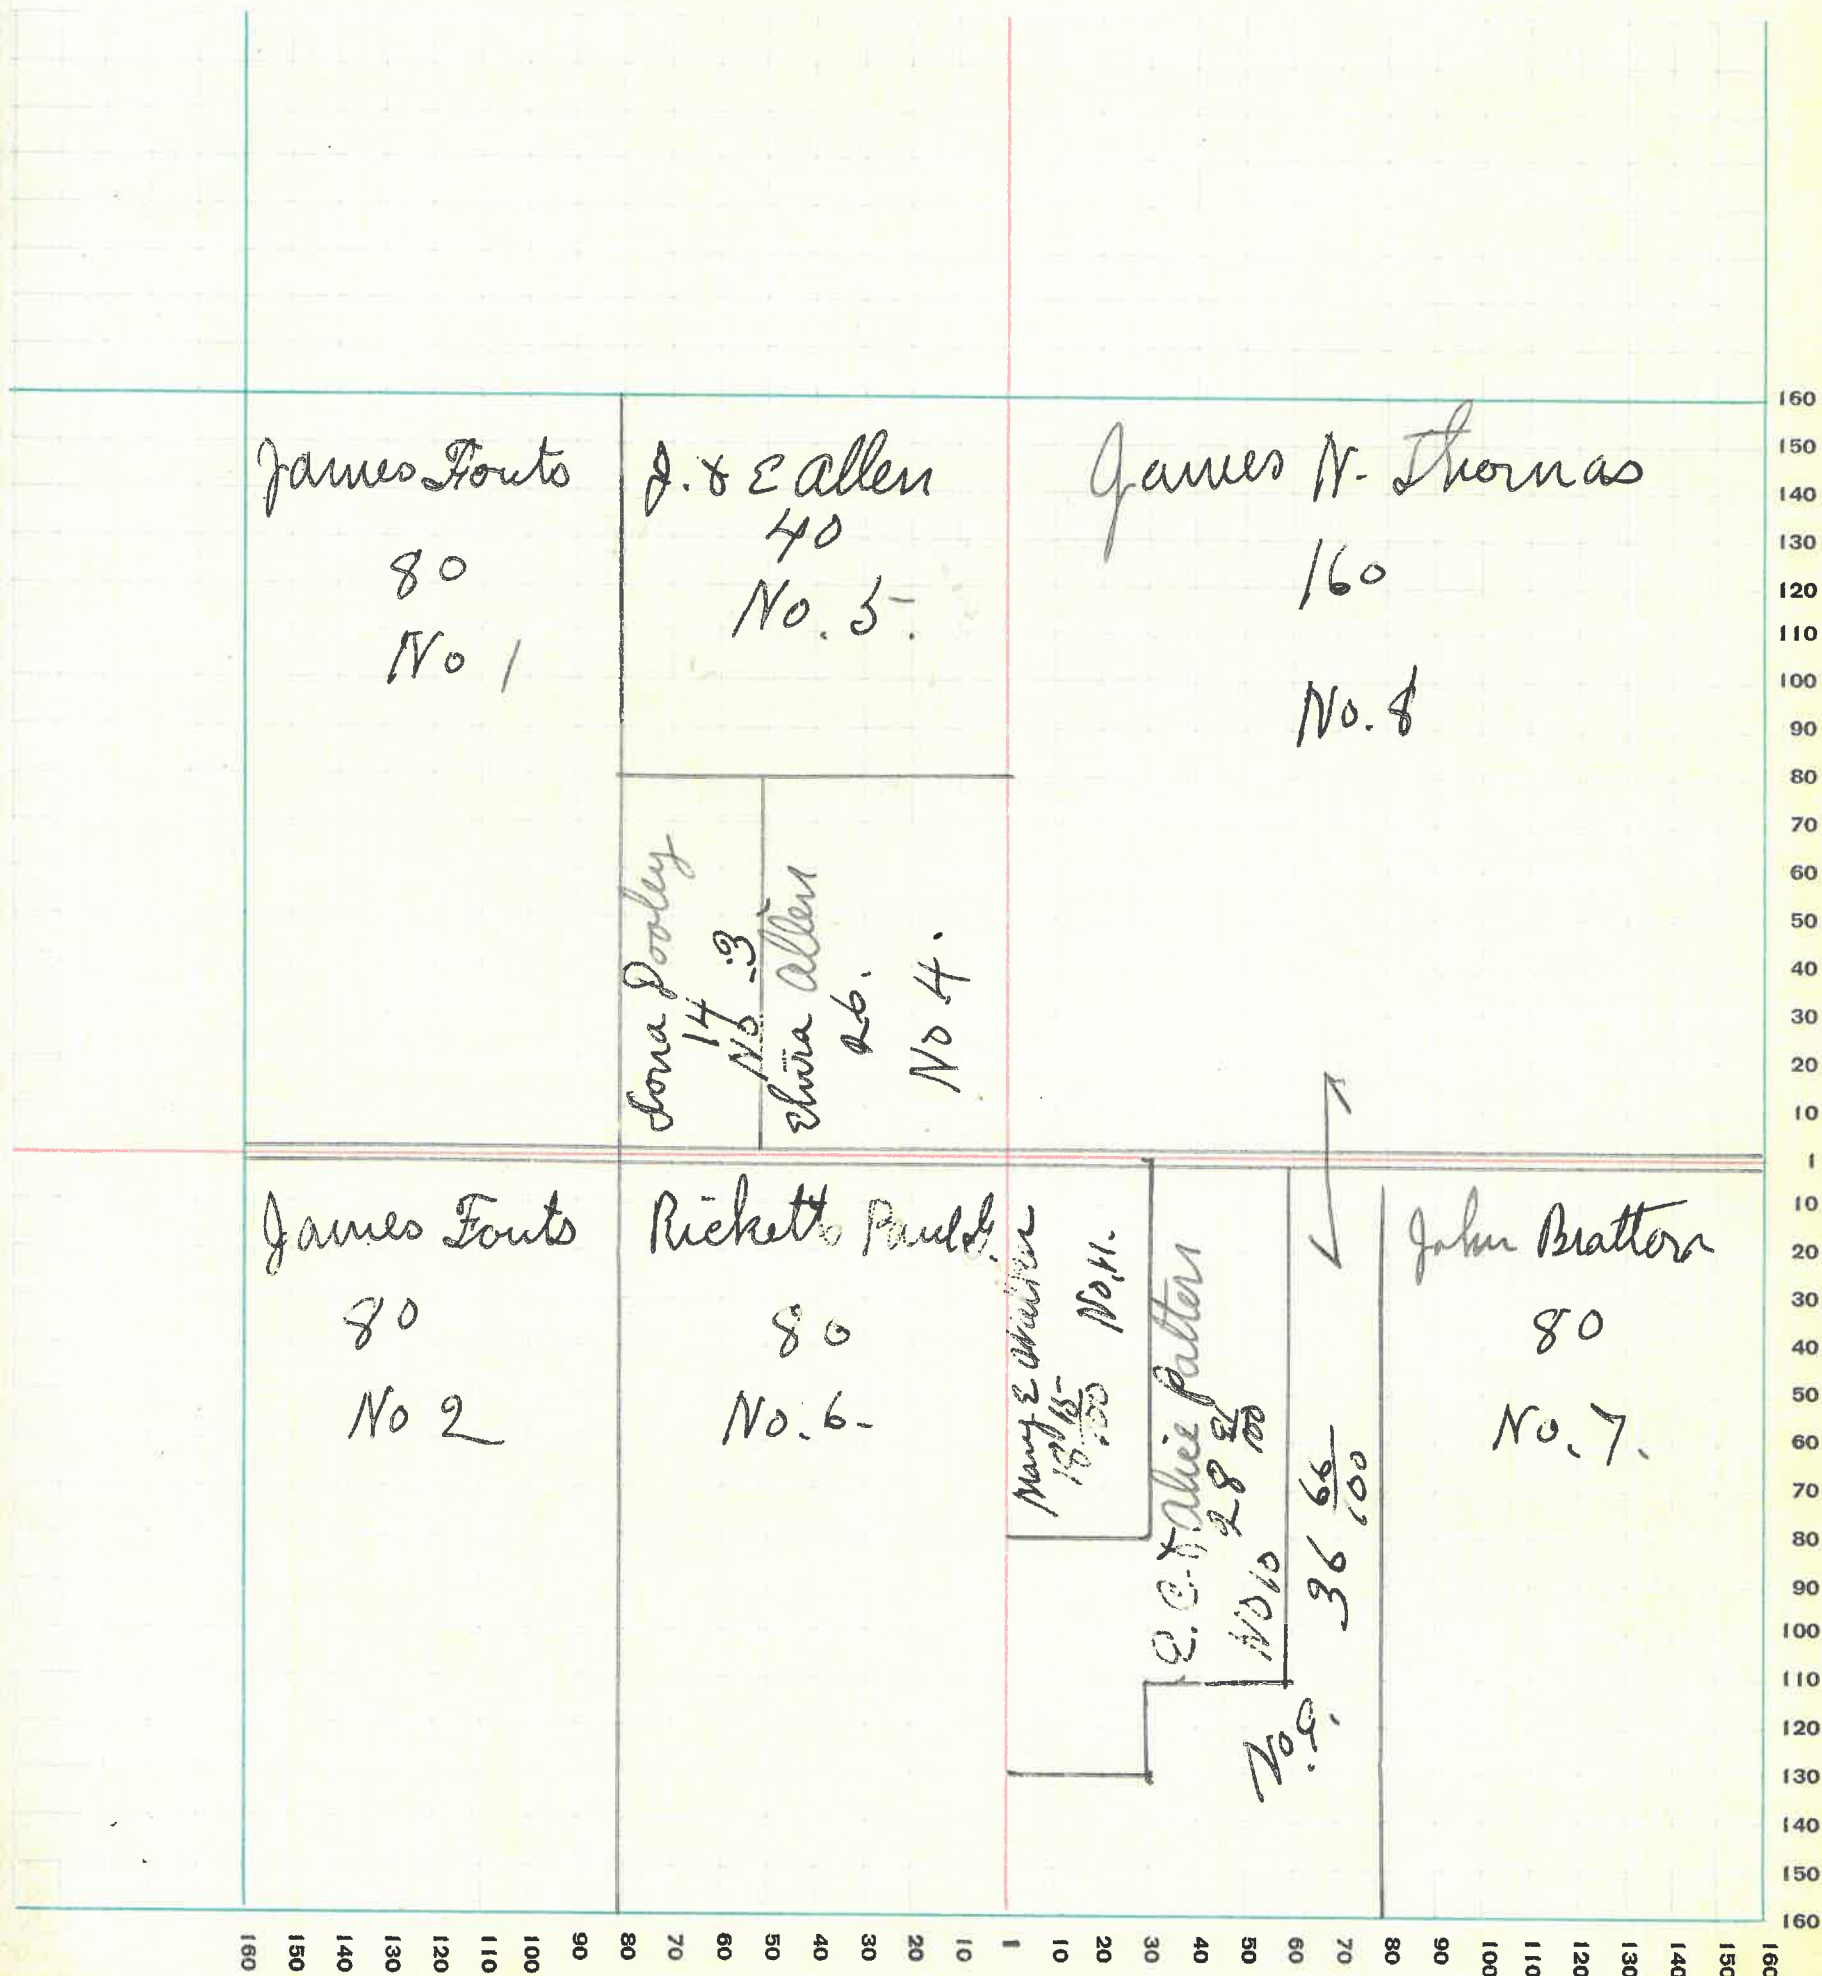 James Fouts
80
No 1
J. & E Allen
40
No. 5.
James N. Thomas
160
No. 8
Dooley
14
No. 3
Elvira Allen
26.
No 4.
James Fouts
80
No 2
Ricketts Paul G.
80
No. 6-
Mary E
18 15/100
No. 11.
E. C. & Alice Patten
No 10
36 66/100
No. 9.
John Bratton
80
No. 7.
160
150
140
130
120
110
100
90
80
70
60
50
40
30
20
10
1
10
20
30
40
50
60
70
80
90
100
110
120
130
140
150
160
160 150 140 130 120 110 100 90 80 70 60 50 40 30 20 10 1 10 20 30 40 50 60 70 80 90 100 110 120 130 140 150 160